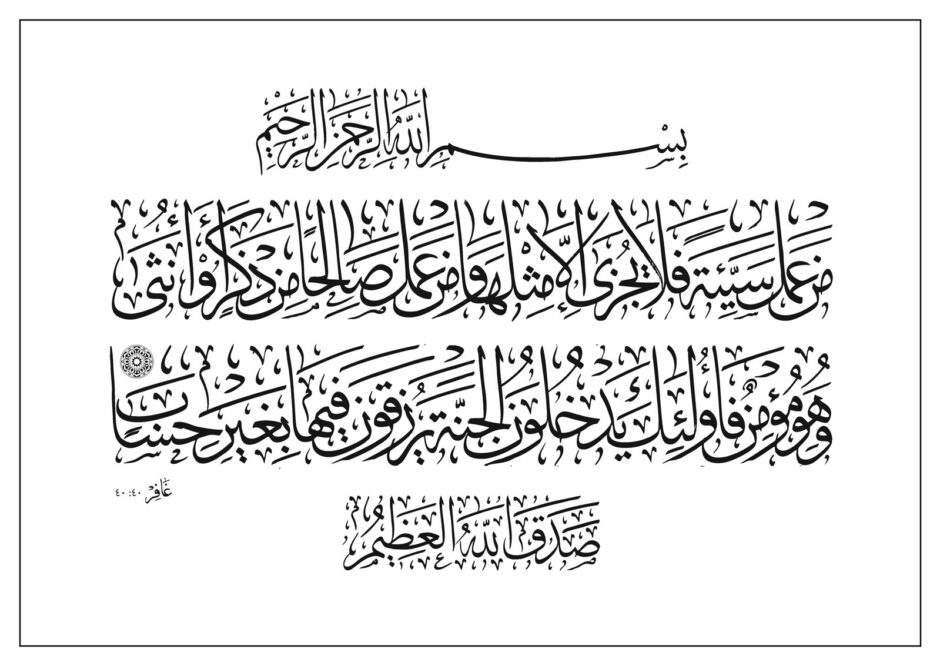 بِسْمِ اللَّهِ الرَّحْمَنِ الرَّحِيمِ
مَنْ عَمِلَ سَيِّئَةً فَلَا يُجْزَى إِلَّا مِثْلَهَا وَمَنْ عَمِلَ صَالِحًا مِنْ ذَكَرٍ أَوْ أُنْثَى
وَهُوَ مُؤْمِنٌ فَأُولَئِكَ يَدْخُلُونَ الْجَنَّةَ يُرْزَقُونَ فِيهَا بِغَيْرِ حِسَابٍ
غَافِرْ ٤٠:٤٠
صَدَقَ اللَّهُ الْعَظِيمُ